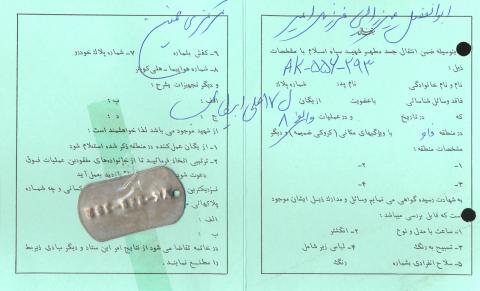 ابوالفضل
بدینوسیله ضمن انتقال جسد مطهر شهید سپاه اسلام با مشخصات
ذیل :
AK-557-293
نام و نام خانوادگی نام پدر شماره پلاک
فاقد وسائل شناسائی باعضویت ازیگان ل ۱۷ علی ابن
که در تاریخ و در عملیات والفجر ۸
در منطقه فاو با ویژگیهای مکانی (کروکی ضمیمه) و دیگر
مشخصات منطقه :
۱- ۲-
۳- ۴-
به شهادت رسیده گواهی می نمایم وسائل و مدارک ذیل ایشان موجود
است که قابل بررسی میباشد :
۱- ساعت با مدل و نوع ۲- انگشتر
۳- تسبیح به رنگ ۴- لباس زیر شامل
۵- سلاح انفرادی بشماره رنگ
۶- کفش بشماره ۷- شماره پلاک خودرو
۸- شماره هواپیما - هلی کوپتر
و دیگر تجهیزات بشرح :
الف : ب :
ج : د :
از شهید موجود می باشد لذا خواهشمند است :
۱- از یگان عمل کننده در منطقه ذکر شده استعلام شود
۲- ترتیبی اتخاذ فرمائید تا از خانواده های مفقودین عملیات فوق
دعوت شود بعمل آید
کسانی و چه شماره
پلاکهائی
الف :
ب :
در خاتمه تقاضا می شود از نتایج امر این ستاد و دیگر مبادی ذیربط
را مطلع نمایند .